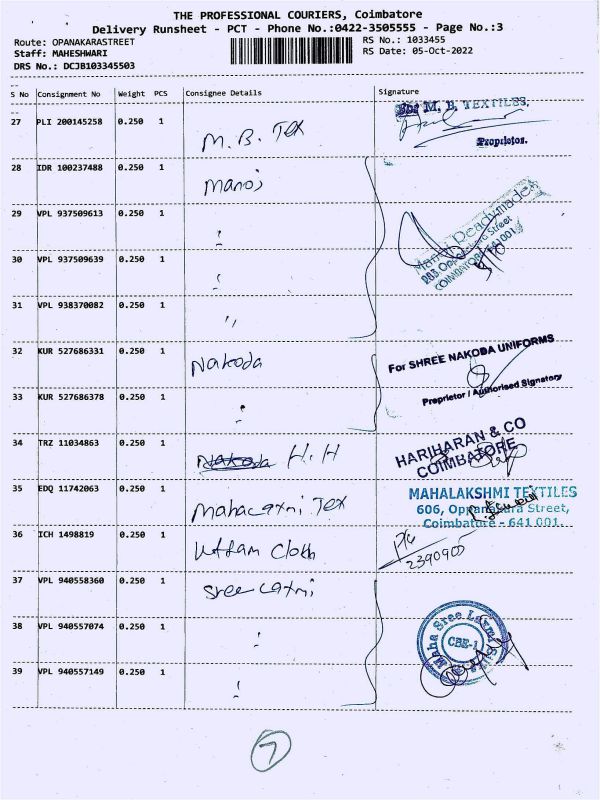 THE PROFESSIONAL COURIERS, Coimbatore
Delivery Runsheet - PCT - Phone No.:0422-3505555 - Page No.:3
Route: OPANAKARASTREET
Staff: MAHESHWARI
DRS No.: DCJB103345503
RS No.: 1033455
RS Date: 05-Oct-2022
S No Consignment No Weight PCS Consignee Details Signature
27 PLI 200145258 0.250 1 M. B. Tex
For M. B. TEXTILES,
Proprietor.
28 IDR 100237488 0.250 1 Manoj
29 VPL 937509613 0.250 1 "
Manoj Readymades
283, Oppanakara Street
COIMBATORE 641 001
30 VPL 937509639 0.250 1 "
31 VPL 938370082 0.250 1 "
32 KUR 527686331 0.250 1 Nakoda
For SHREE NAKODA UNIFORMS
Proprietor / Authorised Signatory
33 KUR 527686378 0.250 1 "
34 TRZ 11034863 0.250 1 Nakoda H.H
HARIHARAN & CO
COIMBATORE
35 EDQ 11742063 0.250 1 Mahalaxmi Tex
MAHALAKSHMI TEXTILES
606, Oppanakara Street,
Coimbatore - 641 001
36 ICH 1498819 0.250 1 Uttam Cloth
2390905
37 VPL 940558360 0.250 1 Sree Laxmi
38 VPL 940557074 0.250 1 "
Maha Sree Laxmi
CBE-1
39 VPL 940557149 0.250 1 "
7